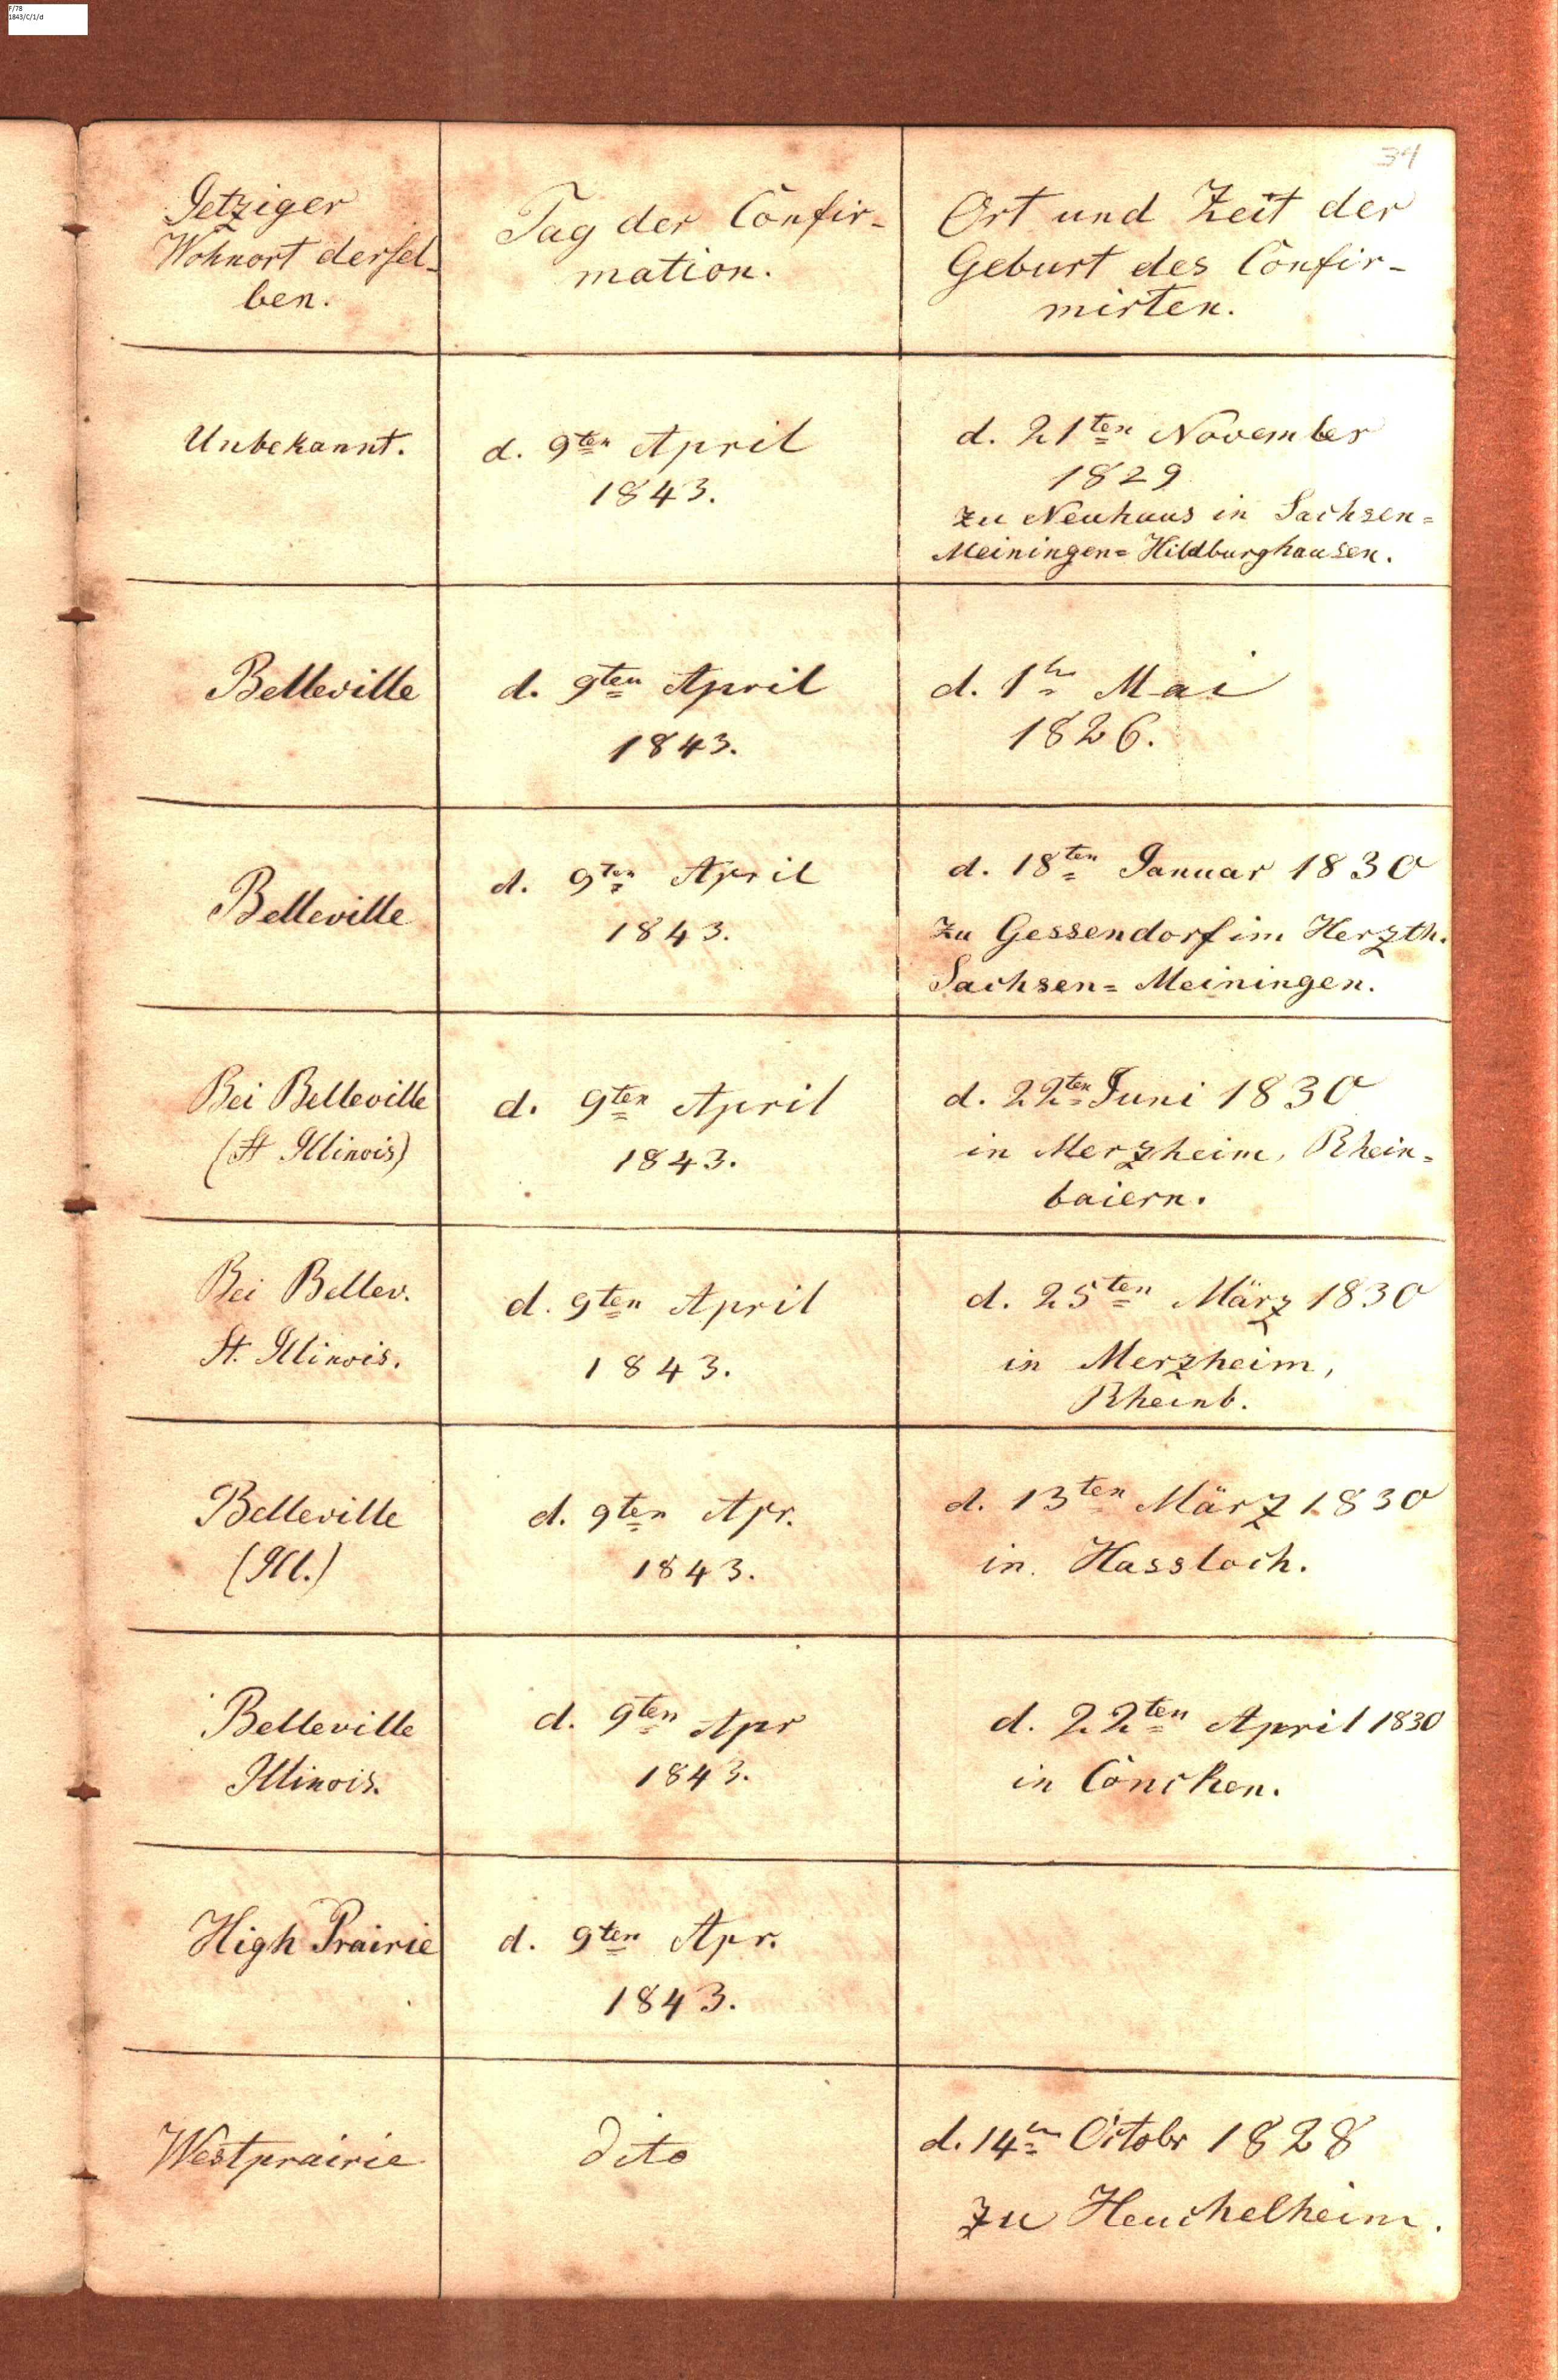 F/78
1843/C/1/d
34
Jetziger
Wohnort dersel-
ben.
Tag der Confir-
mation.
Ort und Zeit der
Geburt des Confir-
mirten.
Unbekannt.
d. 9ten April
1843.
d. 21ten November
1829
zu Neuhaus in Sachsen=
Meiningen=Hildburghausen.
Belleville
d. 9ten April
1843.
d. 1ten Mai
1826.
Belleville
d. 9ten April
1843.
d. 18ten Januar 1830
zu Gessendorf im Herzth.
Sachsen=Meiningen.
Bei Belleville
(St Illinois)
d. 9ten April
1843.
d. 22ten Juni 1830
in Merzheim, Rhein=
baiern.
Bei Bellev.
St. Illinois.
d. 9ten April
1843.
d. 25ten März 1830
in Merzheim,
Rheinb.
Belleville
(Ill.)
d. 9ten Apr.
1843.
d. 13ten März 1830
in Hassloch.
Belleville
Illinois.
d. 9ten Apr
1843.
d. 22ten April 1830
in Concken.
High Prairie
d. 9ten Apr.
1843.
Westprairie
dito
d. 14ten Octobr 1828
zu Heuchelheim.